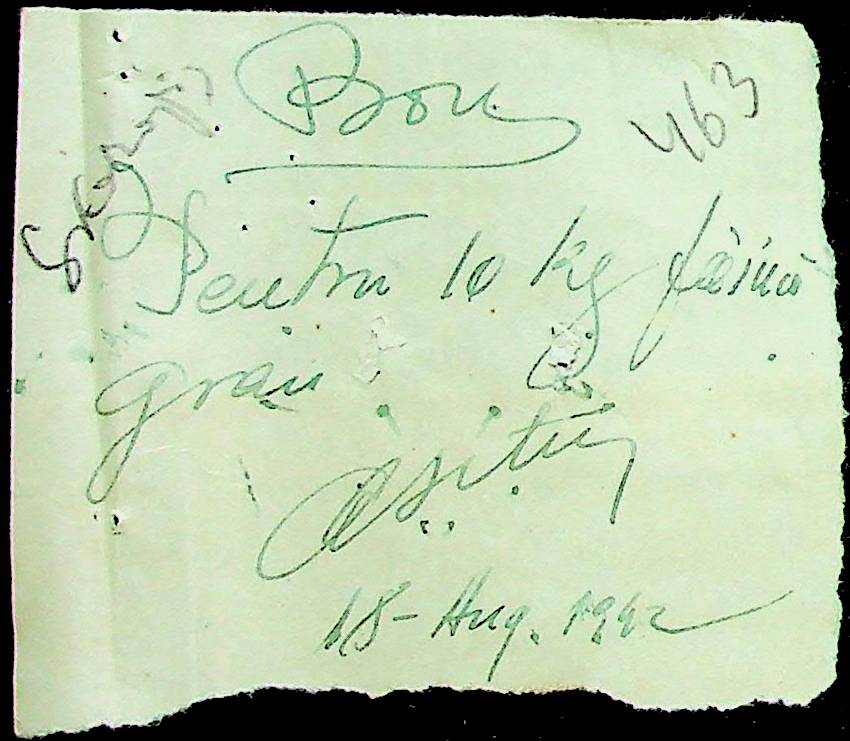 Bon
463
Pentru 10 kg făină
grâu
18 - Aug. 1942